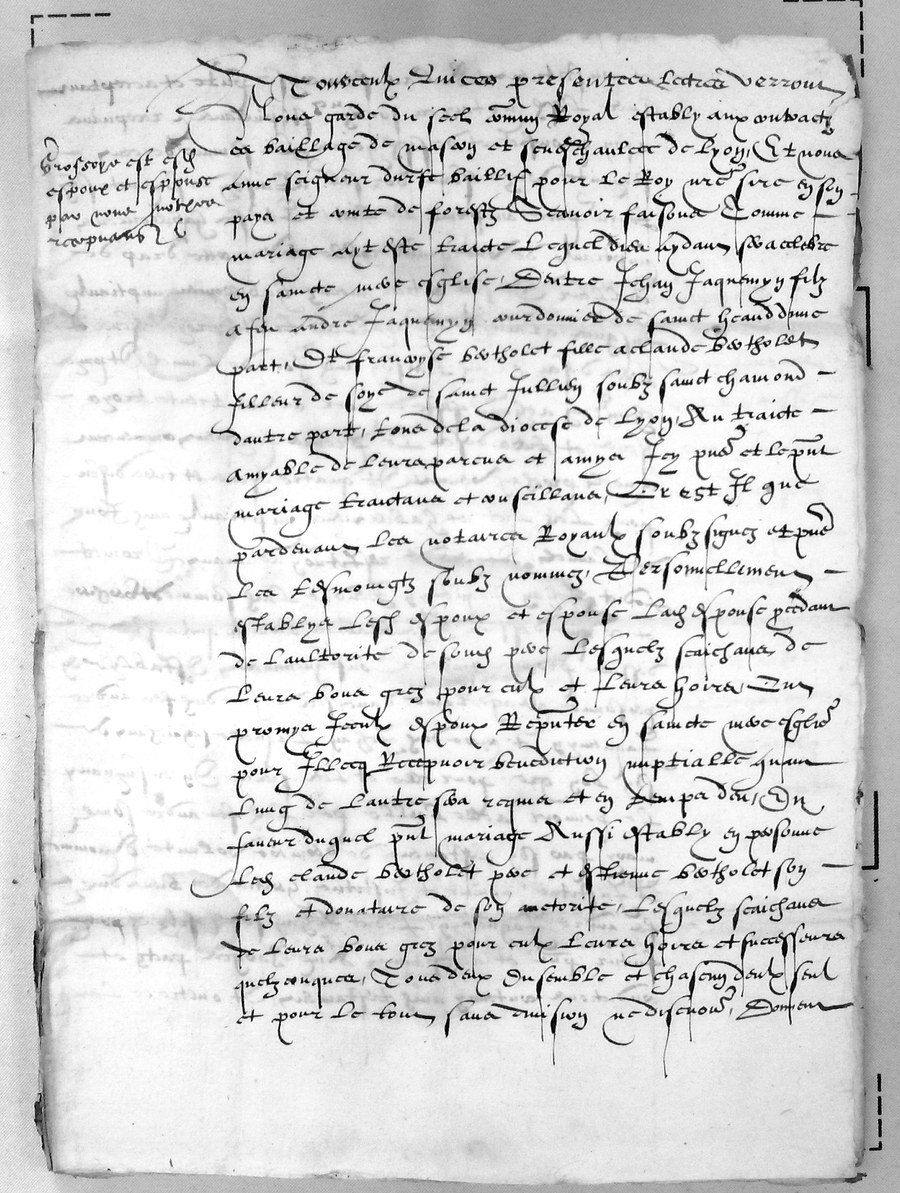 A Tousceulx qui ces presentes lectres verront
Nous garde du seel commun Royal estably aux contractz
es bailliage de mascon et seneschaulcee de lyon, Et nous
anne seigneur durfe baillif pour le Roy nre sire en son
pays et conte de forestz Scavoir faisons Comme
mariage ayt este traicte lequel dieu aydant sera celebre
en saincte mere esglise, Dentre Jehan Jaquemyn filz
a feu andre Jaquemyn cordonnier de sainct heand dune
part, Et francoyse bertholet fille a claude bertholet
filleur de soye de sainct Jullien soubz sainct chamond
daultre part, tous de la diocese de lyon, Au traicte
amyable de leurs parens et amys Icy pnts et le pnt
mariage traictans et conseillans, Or est Il que
pardevant les notaires Royaulx soubzsignez et pnts
les tesmoingtz soubz nommez, Personnellement
establys lesd espoux et espouse lad espouse procedant
de laultorite de sond pere lesquelz saichans de
leurs bons grez pour eulx et leurs hoires, Ont
promys Iceulx espoux Repnter en saincte mere esglise
pour Illecq Recepvoir benediction nuptialle quant
lung de lautre sera requis et en temps deu, En
faveur duquel pnt mariage Aussi estably en personne
led claude bertholet pere et estienne bertholet son
filz et donataire de son auctorite, lesquelz saichans
de leurs bons grez pour eulx leurs hoires et successeurs
quelzconques, Tous deux Ensemble et chascun deulx seul
et pour le tout sans division ne discution, Donnent
Grossoye est esd
espoux et espouse
par nous notere
recepvans